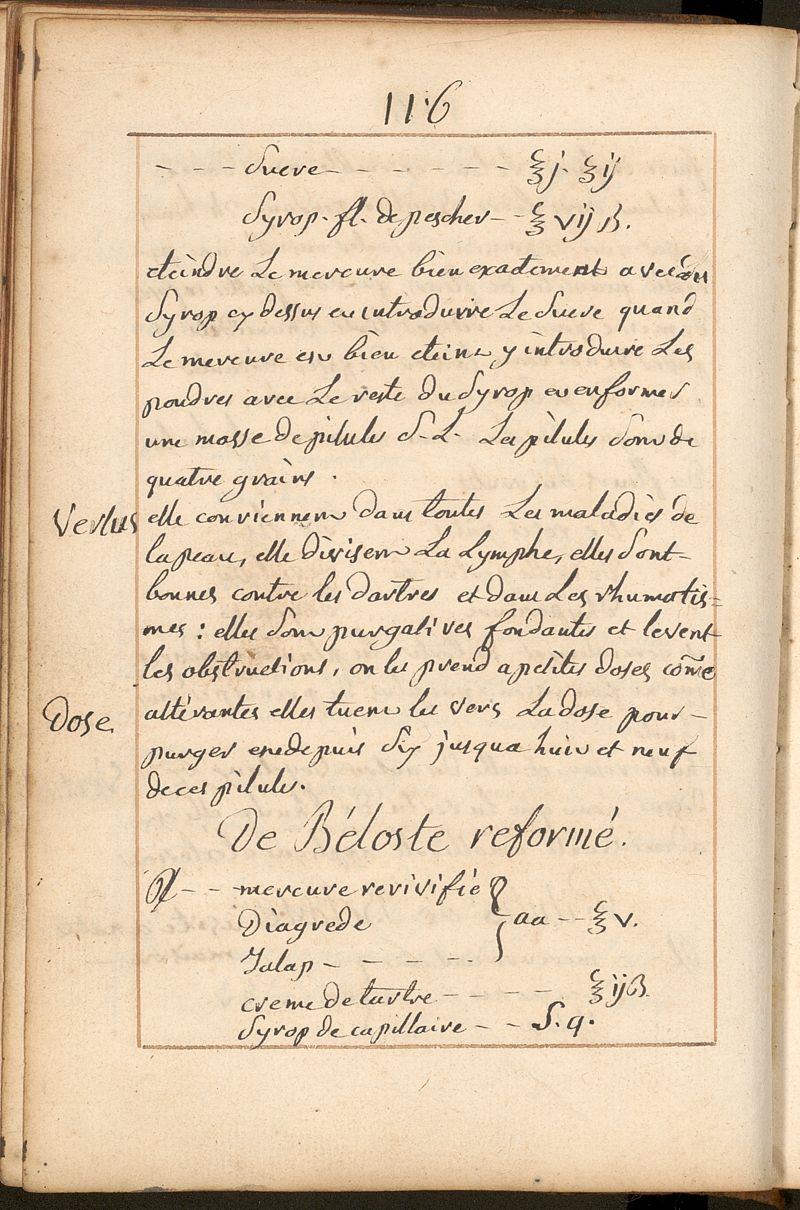 116
- - - Sucre - - - - - - ℥j. ℥ij
Syrop. fl. de pescher - - ℥ vij ß.
eteindre Le mercure bien exactement avec du
Syrop cy dessus en introduire Le Sucre quand
Le mercure est bien eteint y introduire Les
poudres avec Le reste du Syrop et en former
une masse de pilules S. L. La pilules sont de
quatre grains.
Vertus elle conviennent dans toutes Les maladies de
la peau, elle divisent La Lymphe, elles sont
bonnes contre les dartres et dans Les rhumatis=
mes : elles sont purgatives fondantes et levent
les obstructions, on les prend a petites doses com̃e
altérantes elles tuent les vers La dose pour -
Dose
purger est depuis Six jusqua huit et neuf
de ces pilules.
De Béloste reformé.
℞ - - mercure revivifié
Diagrede } aa - - ℥ v.
Jalap - - - - -
creme de tartre - - - - ℥ ij ß.
Syrop de capillaire - - S. q.